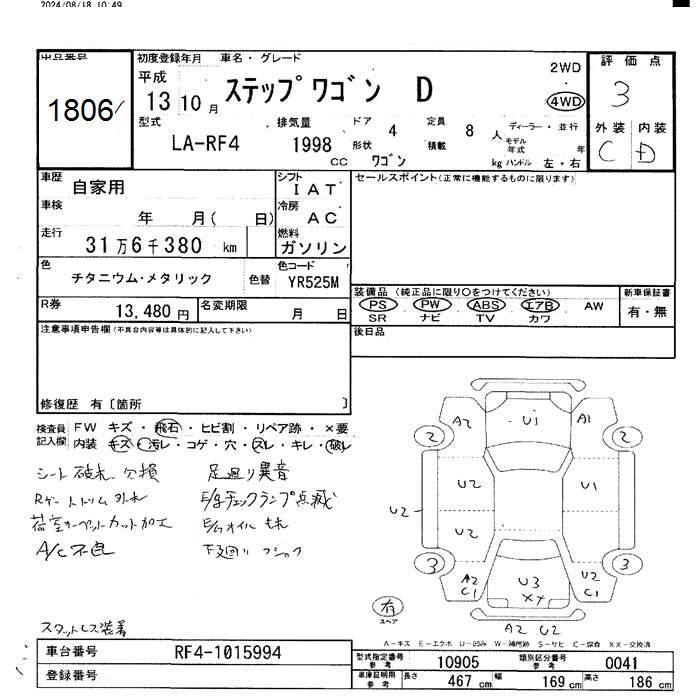 2024/08/18 10:49
出品番号
1806
初度登録年月 車名・グレード
平成
13 10 月 ステップワゴン D
2WD
4WD
評価点
3
外装 内装
C D
型式 排気量 ドア 定員 ディーラー・並行
LA-RF4 1998 cc 4 8 人 モデル年式 年
形状 ワゴン 積載 kg ハンドル 左・右
車歴 自家用
シフト I AT
車検 年 月( 日)
冷房 AC
走行 31万6千380 km
燃料 ガソリン
色 チタニウム・メタリック 色替
色コード YR525M
R券 13,480 円 名変期限 月 日
セールスポイント(正常に機能するものに限ります)
装備品(純正品に限り○をつけてください) 新車保証書
PS PW ABS エアB AW 有・無
SR ナビ TV カワ
後日品
注意事項申告欄(不具合内容等は具体的に記入して下さい)
修復歴 有〔箇所 〕
検査員記入欄 FW キズ・飛石・ヒビ割・リペア跡・×要
内装 キズ・汚レ・コゲ・穴・スレ・キレ・破レ
シート破れ 欠損 足廻り異音
Rゲートトリム外れ E/gチェックランプ点滅
荷室カーペットカット加工 E/gオイルもれ
A/C不良 下廻り
スタットレス装着
A2 U1 A2
2 2
U2 U1
U2 U2
3 3
A2 C1 U3 XX U2 C1
有
スペア A2 U2
A-キズ E-エクボ U-凹み W-補修跡 S-サビ C-腐食 XX-交換済
車台番号 RF4-1015994
登録番号
型式指定番号 参考 10905 類別区分番号 参考 0041
車庫証明用 参考 長さ 467 cm 幅 169 cm 高さ 186 cm